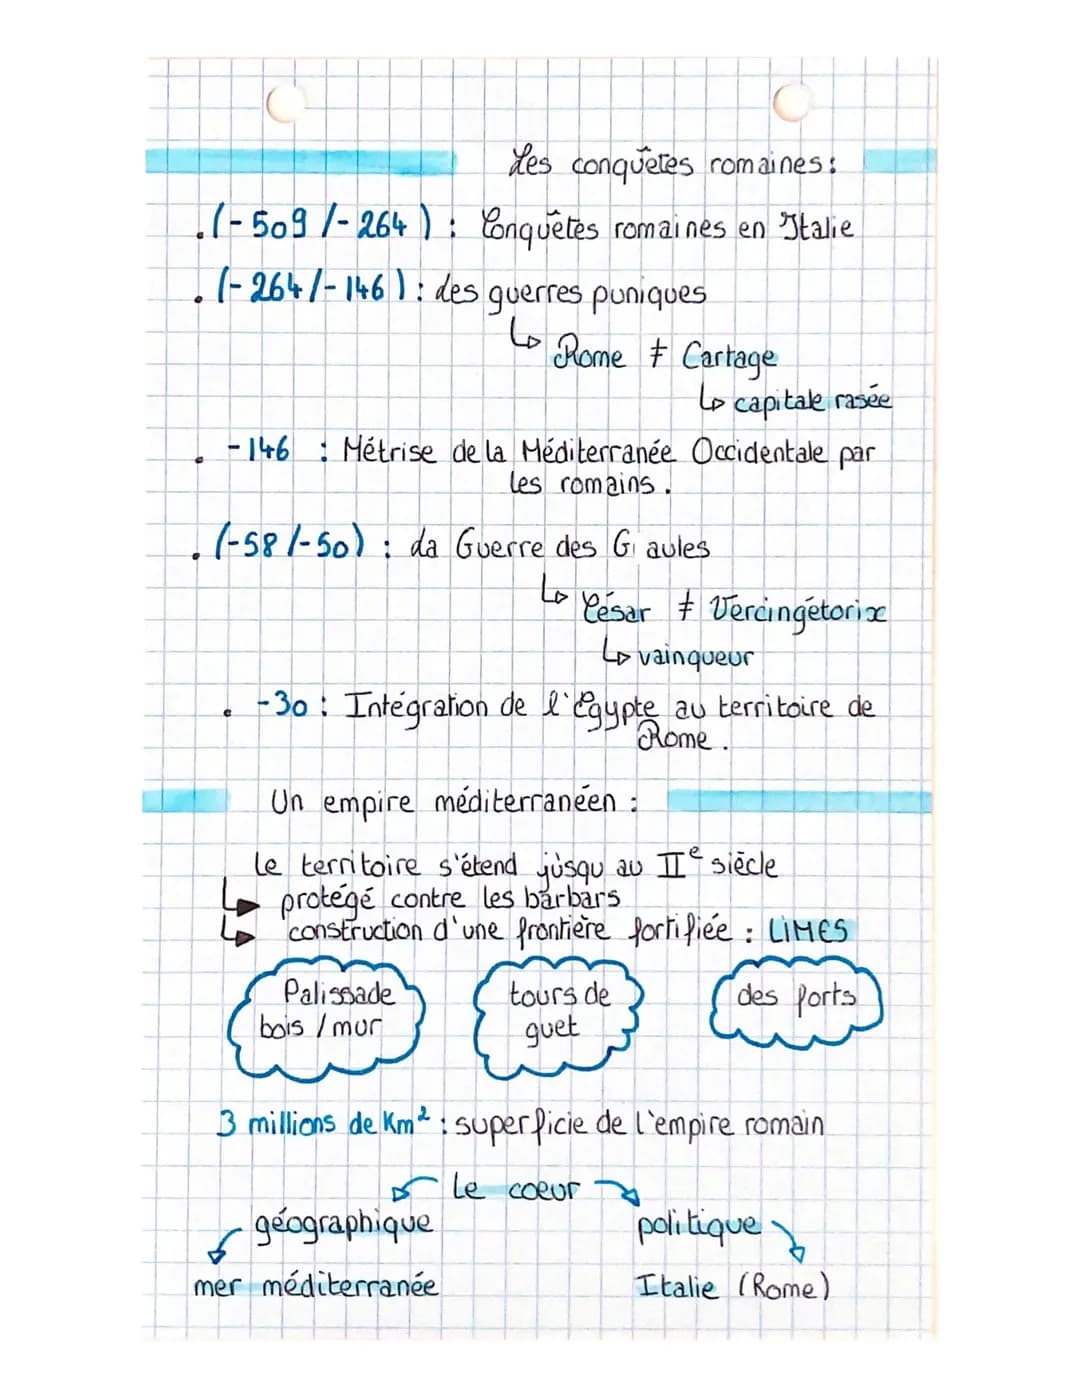 Les conquêtes romaines :
. (-509 /-264) : Conquêtes romaines en Italie
. (-264/-146) : des guerres puniques
↳ Rome ≠ Cartage
↳ capitale rasée
. -146 : Métrise de la Méditerranée Occidentale par
les romains.
. (-58 /-50) : da Guerre des Gaules
↳ César ≠ Vercingétorix
↳ vainqueur
. -30 : Intégration de l'Egypte au territoire de
Rome.
Un empire méditerranéen :
le territoire s'étend jusqu au IIe siècle
↳ protégé contre les barbars
↳ construction d'une frontière fortifiée : LIMES
Palissade
bois / mur
tours de
guet
des forts
3 millions de Km² : superficie de l'empire romain
Le coeur
géographique
politique
mer méditerranée
Italie (Rome)